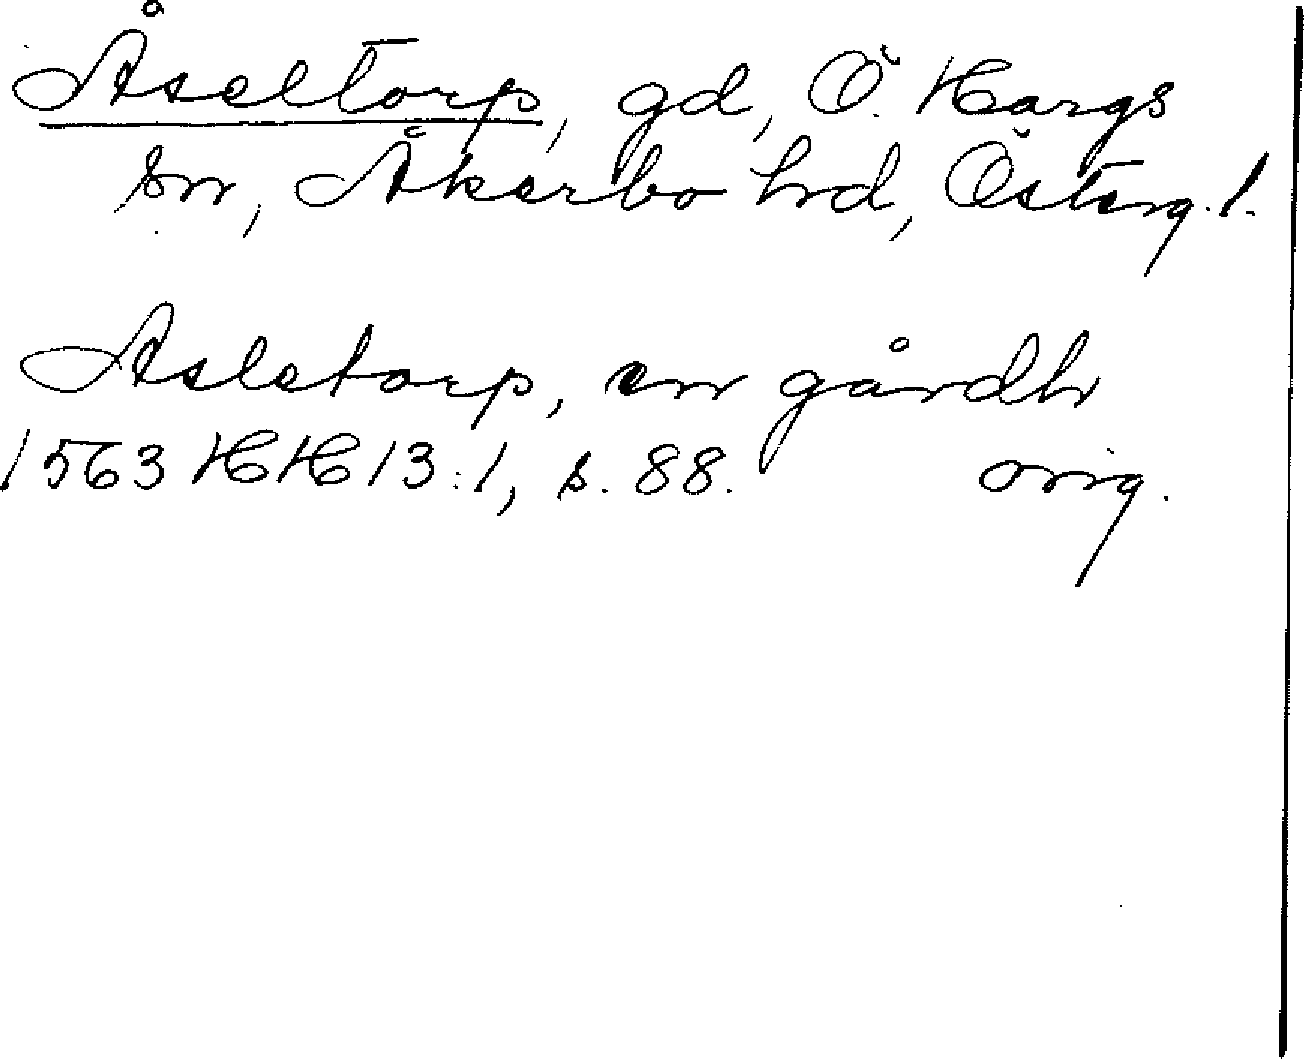 Åseltorp, gd, Ö. Hargs
sn, Åkerbo hd, Österg. l.
Asletorp, en gårdh
1563 HH 13:1, s. 88. orig.